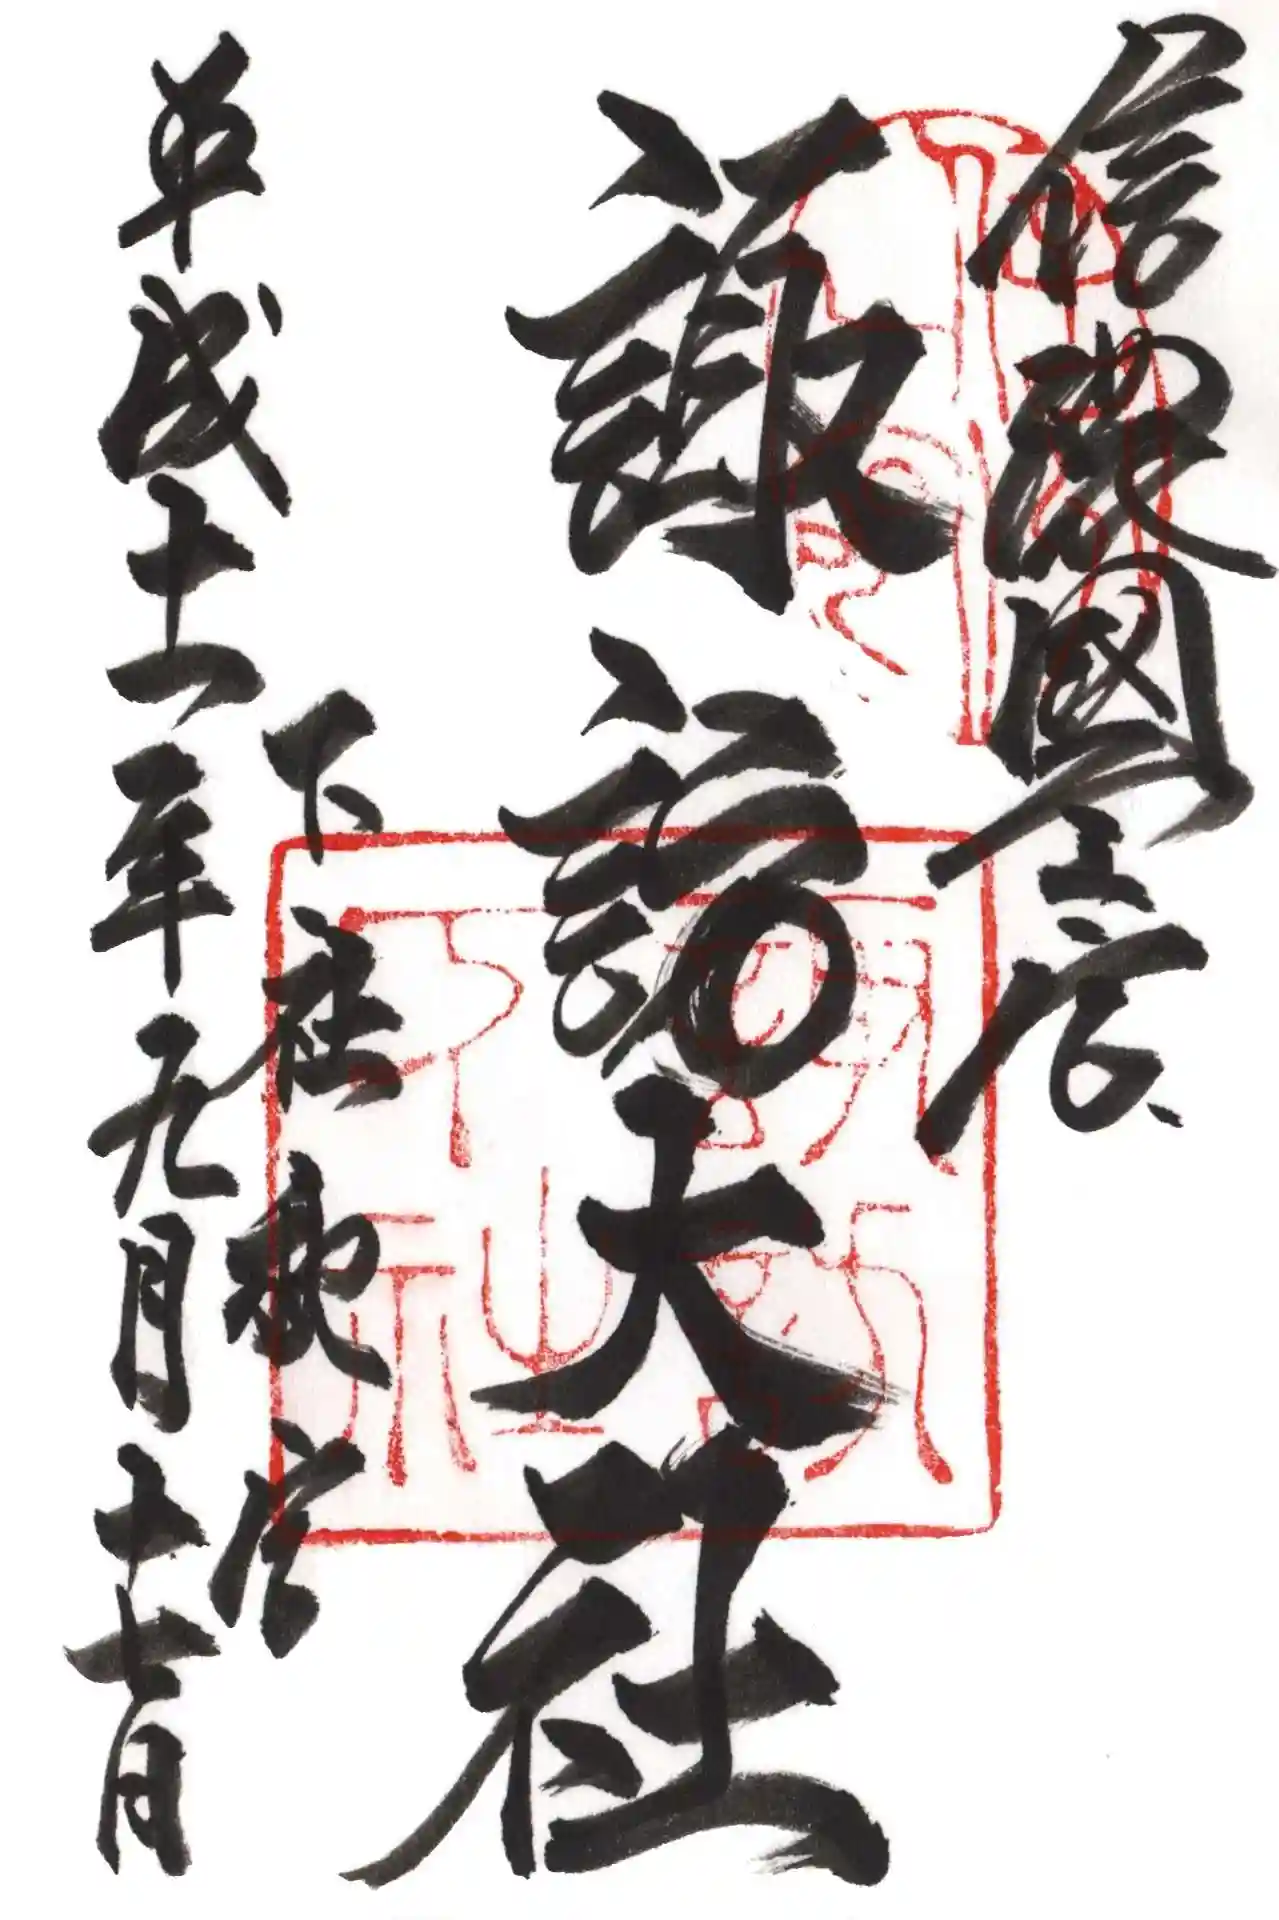 信濃國一之宮
諏訪大社
下社秋宮
平成十一年九月十七日
諏訪
下社